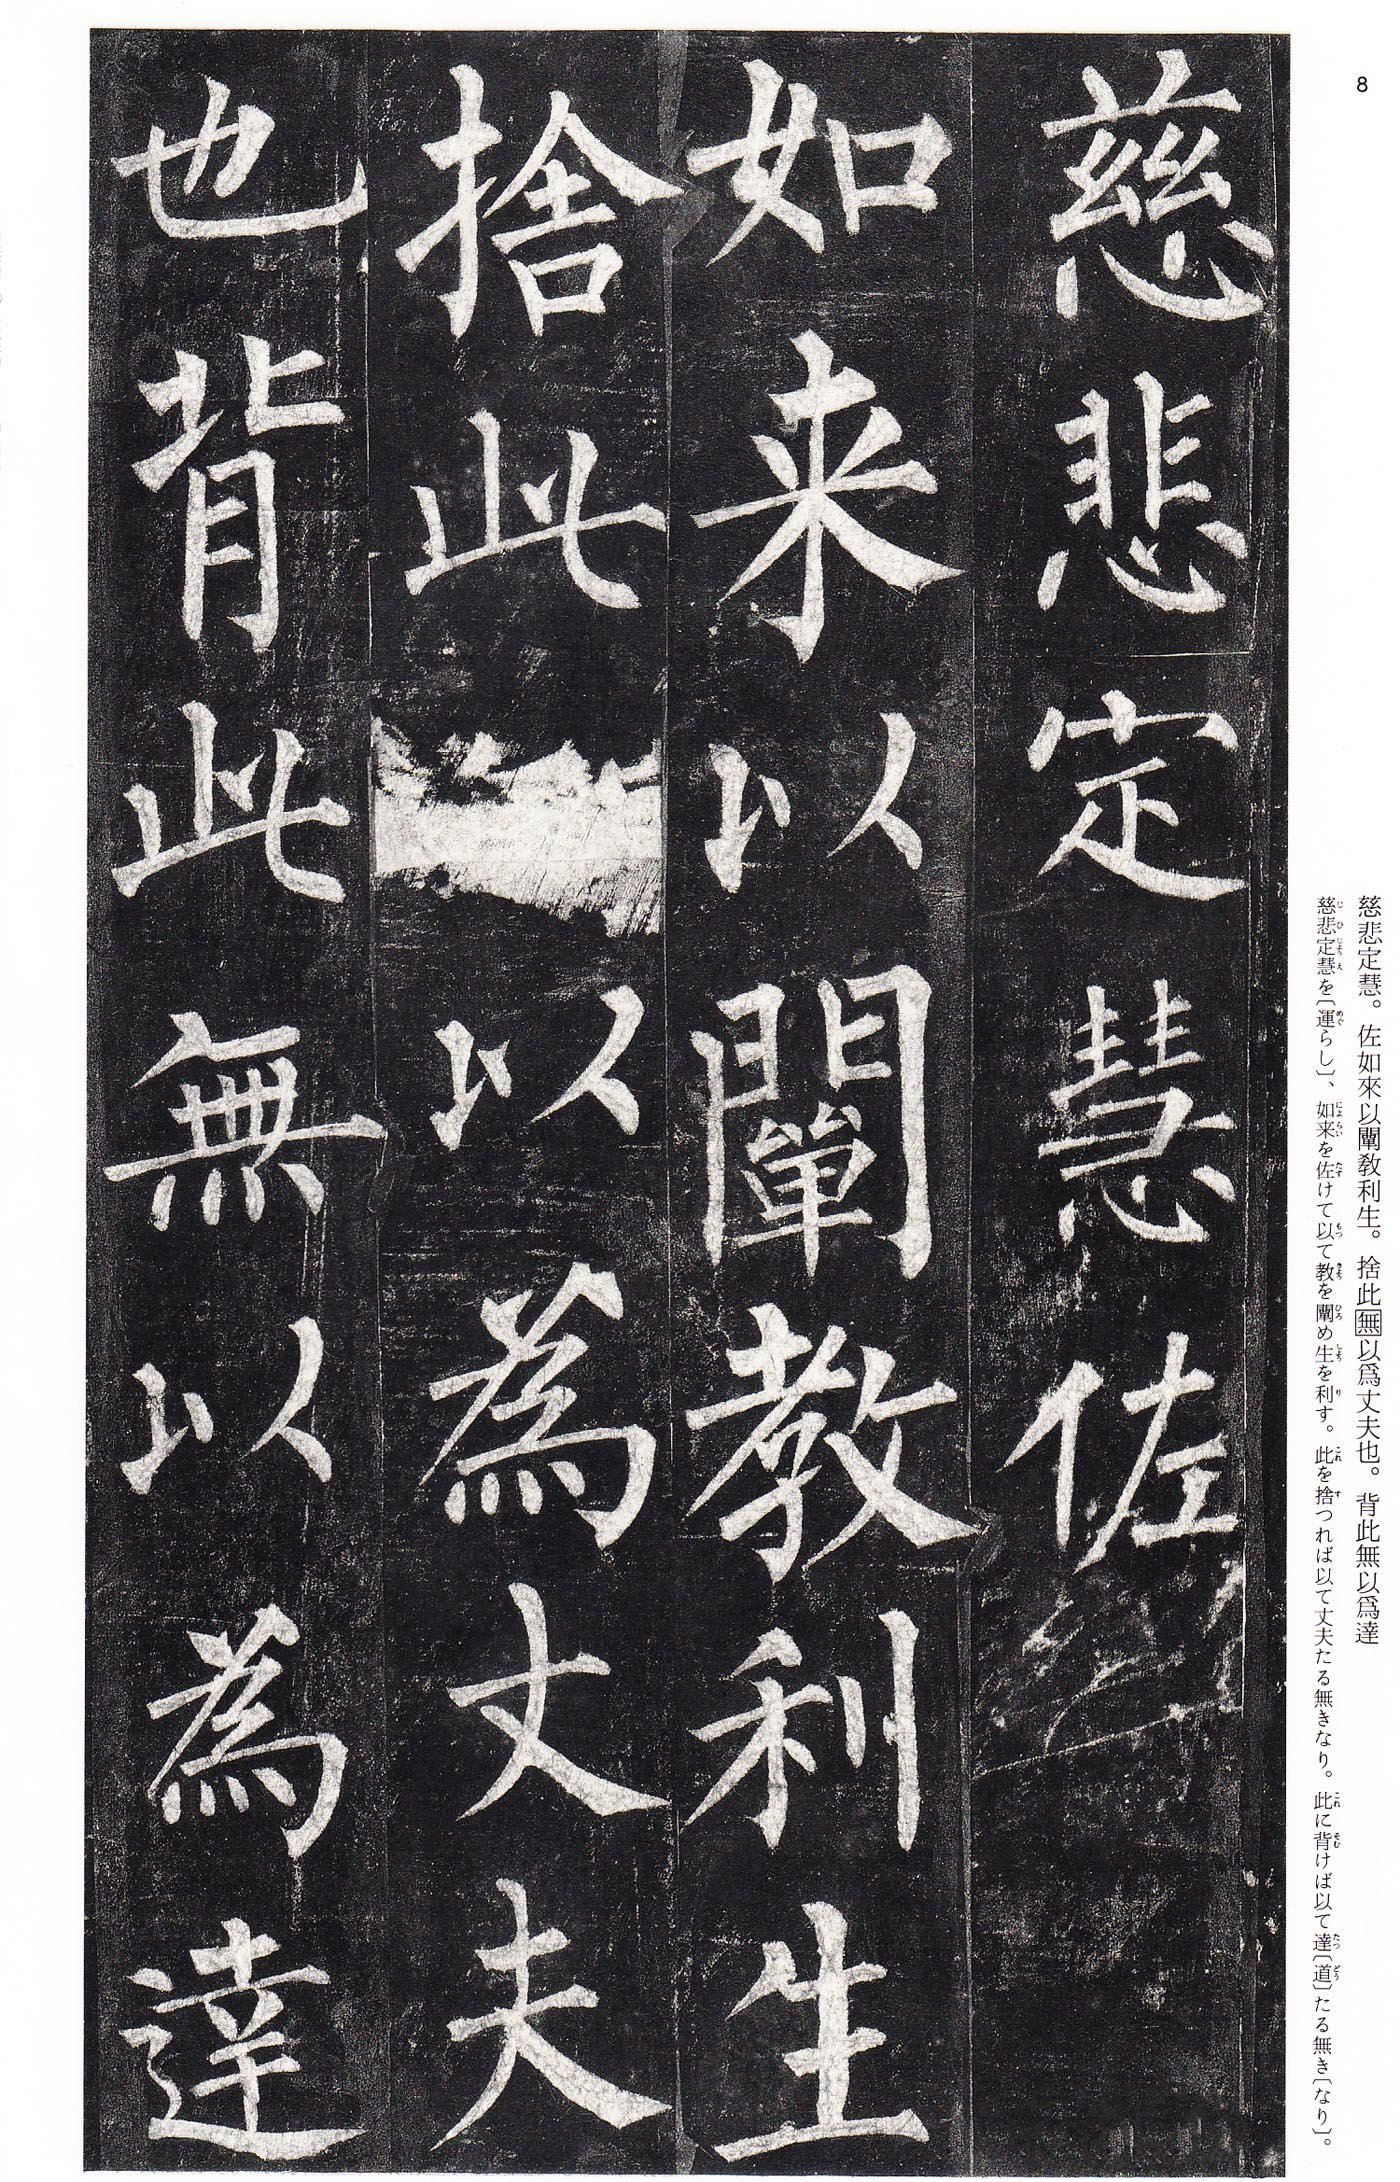 8
慈悲定慧佐
如来以闡教利生
捨此以為丈夫
也背此無以為達
慈悲定慧。佐如來以闡敎利生。捨此無以爲丈夫也。背此無以爲達
慈悲定慧を〔運らし〕、如来を佐けて以て教を闡め生を利す。此を捨つれば以て丈夫たる無きなり。此に背けば以て達〔道〕たる無き〔なり〕。